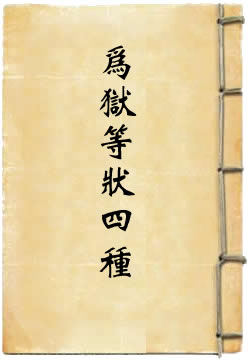 爲獄等狀四種